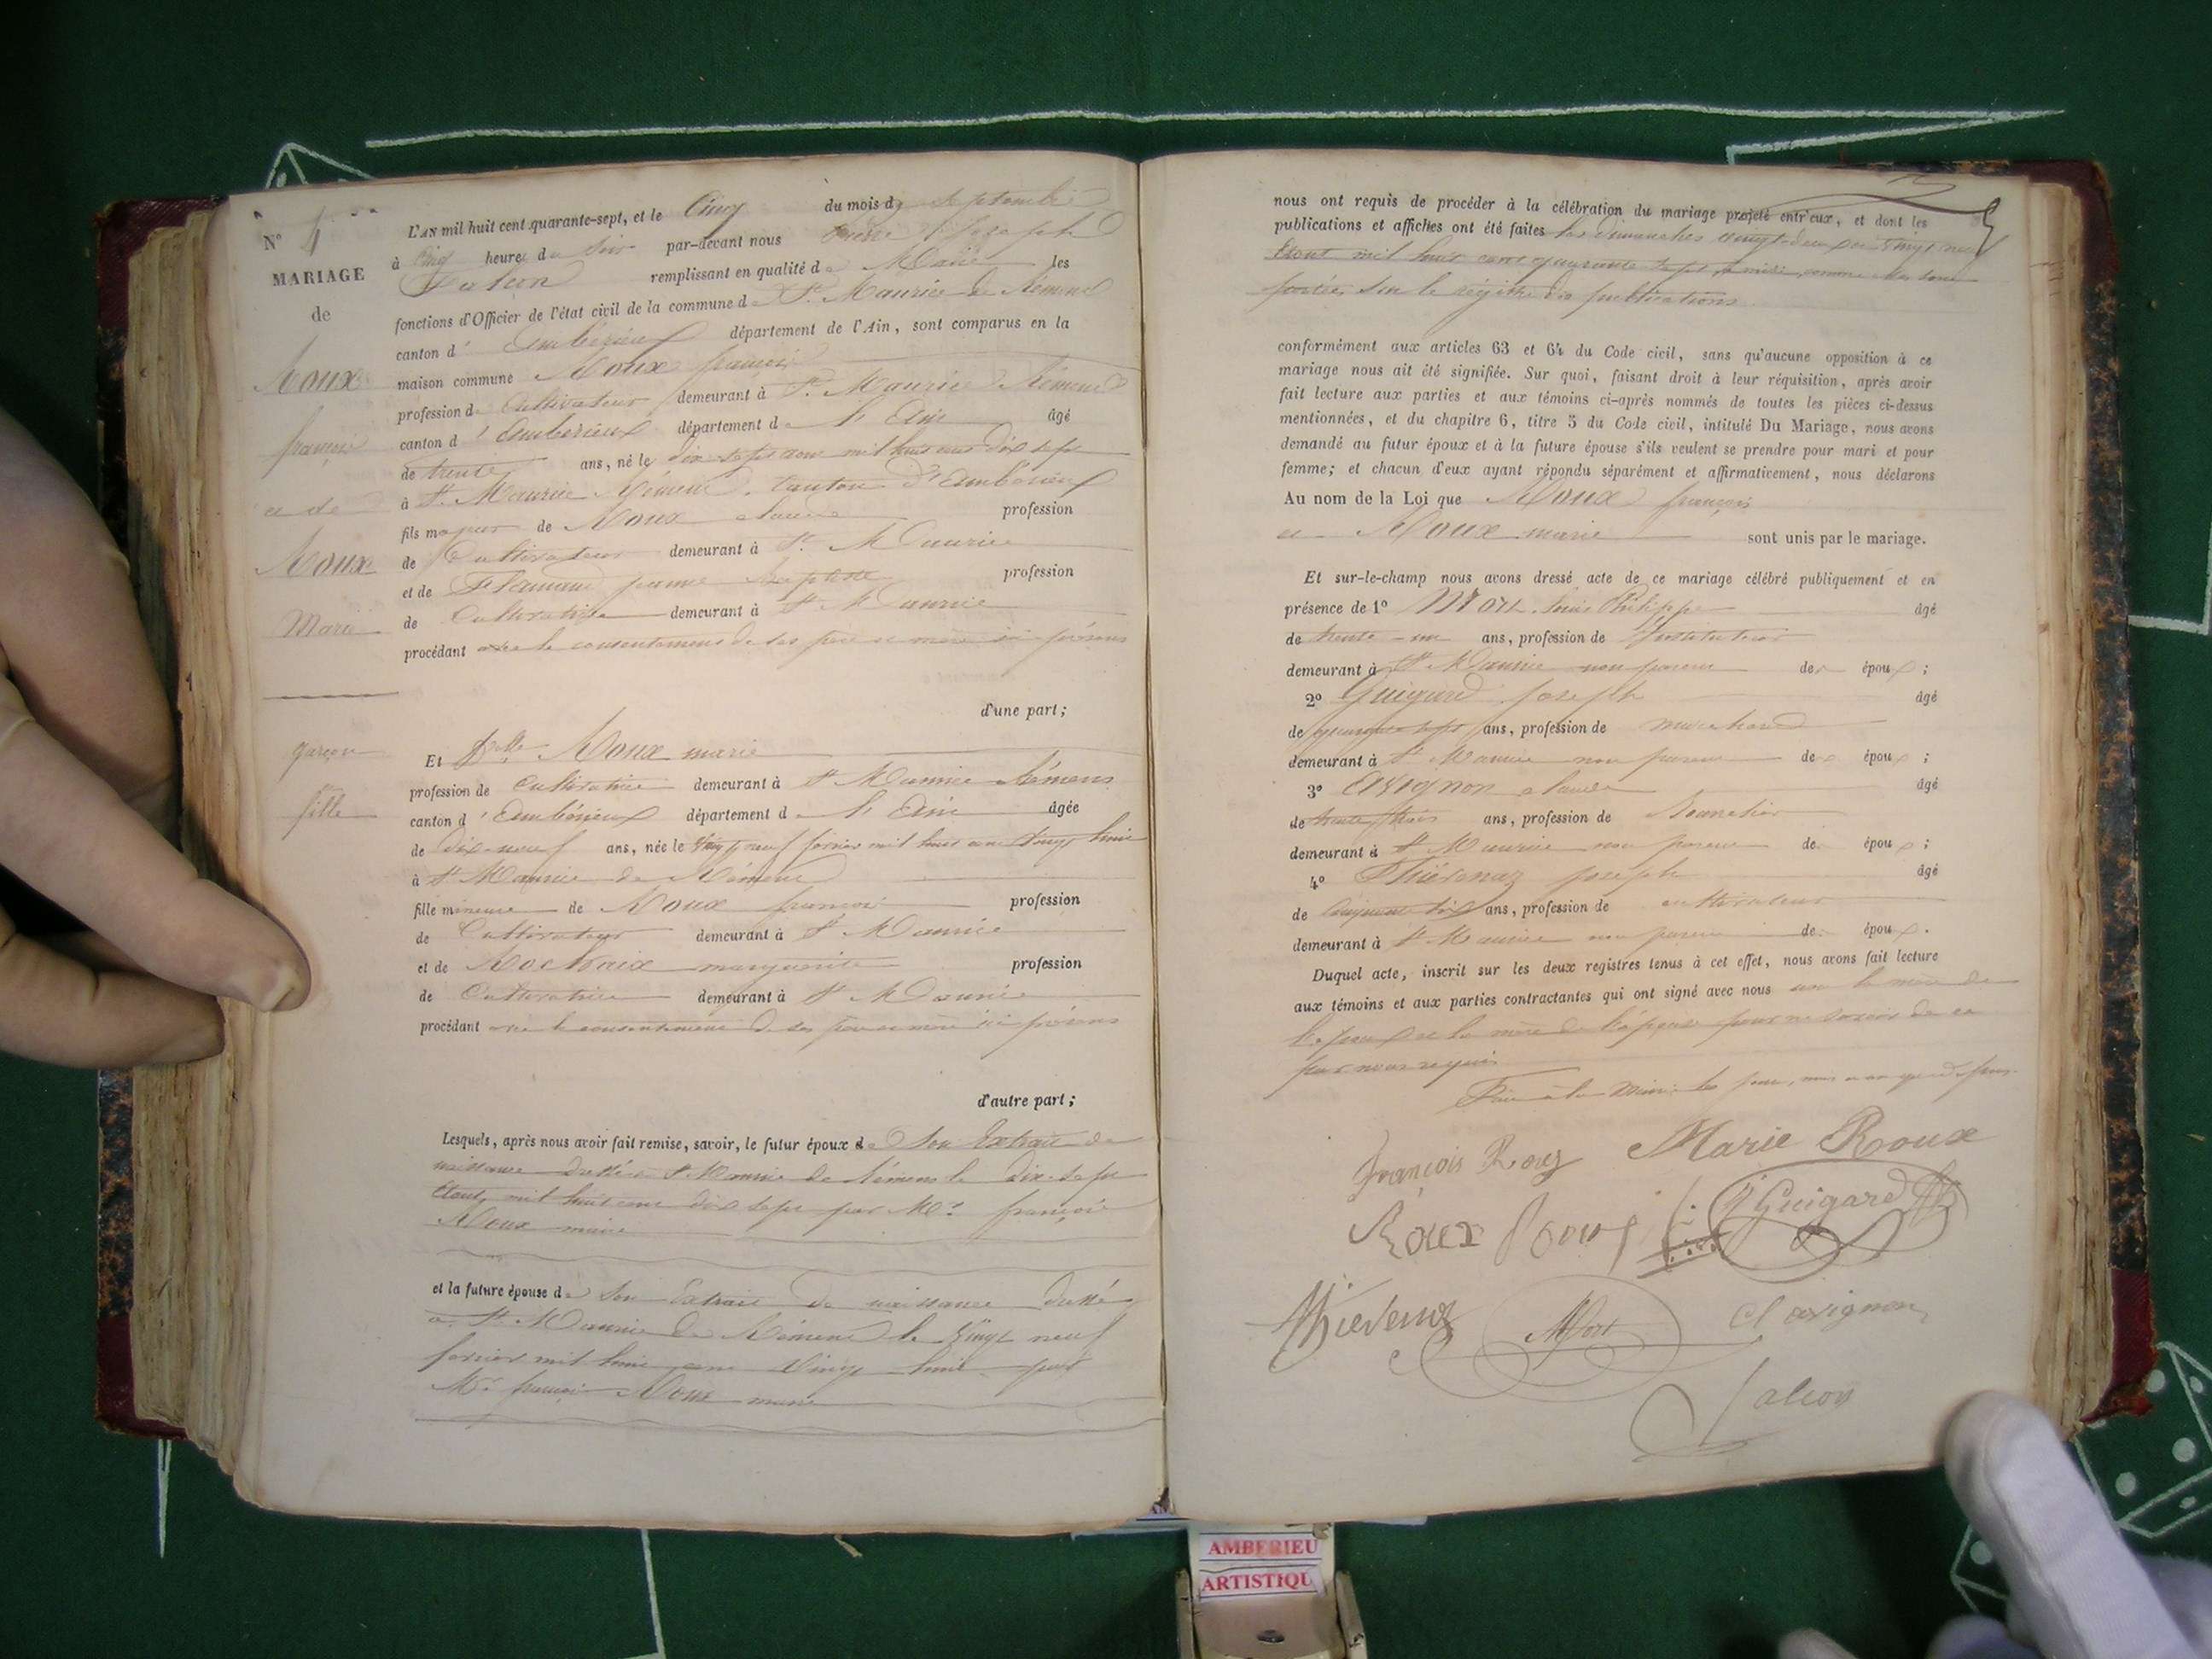 N° 4
MARIAGE
de
Roux
françois
et de
Roux
Marie
garçon
fille
L'AN mil huit cent quarante-sept, et le Cinq du mois de Septembre
à Cinq heure du Soir par-devant nous Joseph
Falcon remplissant en qualité de Maire les
fonctions d'Officier de l'état civil de la commune de St. Maurice de Rémens
canton d' Ambérieux département de l'Ain, sont comparus en la
maison commune Roux françois
profession de Cultivateur demeurant à St. Maurice Rémens
canton d' Ambérieux département de l'Ain âgé
de trente ans, né le dix-sept aout mil huit cent dix sept
à St. Maurice Rémens, Canton d'Ambérieux
fils majeur de Roux claude profession
de Cultivateur demeurant à St. Maurice
et de jeanne baptiste profession
de Cultivatrice demeurant à St Maurice
procédant avec le consentement de ses père et mère ici présens
d'une part;
Et Delle Roux marie
profession de Cultivatrice demeurant à St Maurice Rémens
canton d' Ambérieux département de l'Ain âgée
de dix-neuf ans, née le Vingt neuf février mil huit cent Vingt huit
à St Maurice de Rémens
fille mineure de Roux françois profession
de Cultivateur demeurant à St Maurice
et de Rochaix marguerite profession
de Cultivatrice demeurant à St Maurice
procédant avec le consentement de ses père et mère ici présens
d'autre part;
Lesquels, après nous avoir fait remise, savoir, le futur époux de Son Extrait de
naissance datté à St Maurice de Rémens le dix-sept
aout mil huit cent dix sept par Mr. françois
Roux maire
et la future épouse de Son Extrait de naissance datté
à St Maurice de Rémens le Vingt neuf
février mil huit cent Vingt huit par
Mr françois Roux maire
nous ont requis de procéder à la célébration du mariage projeté entr'eux, et dont les
publications et affiches ont été faites les dimanches vingt-deux et vingt neuf
aout mil huit cent quarante sept à midi, comme elles sont
portées sur le régistre des publications
conformément aux articles 63 et 64 du Code civil, sans qu'aucune opposition à ce
mariage nous ait été signifiée. Sur quoi, faisant droit à leur réquisition, après avoir
fait lecture aux parties et aux témoins ci-après nommés de toutes les pièces ci-dessus
mentionnées, et du chapitre 6, titre 5 du Code civil, intitulé Du Mariage, nous avons
demandé au futur époux et à la future épouse s'ils veulent se prendre pour mari et pour
femme; et chacun d'eux ayant répondu séparément et affirmativement, nous déclarons
Au nom de la Loi que Roux françois
et Roux marie sont unis par le mariage.
Et sur-le-champ nous avons dressé acte de ce mariage célébré publiquement et en
présence de 1° Mort Louis Philippe âgé
de trente-un ans, profession de Instituteur
demeurant à St Maurice non parent des époux;
2° Guigard joseph âgé
de quarante sept ans, profession de marchand
demeurant à St Maurice non parent des époux;
3° Avignon claude âgé
de trente trois ans, profession de
demeurant à St Maurice non parent des époux;
4° Thiévenaz joseph âgé
de ans, profession de cultivateur
demeurant à St Maurice non parent des époux.
Duquel acte, inscrit sur les deux registres tenus à cet effet, nous avons fait lecture
aux témoins et aux parties contractantes qui ont signé avec nous non la mère de
l'époux et la mère de l'épouse pour ne savoir de ce
par nous requis
Fait à la Mairie les jour, mois et an que dessus.
François Roux Marie Roux
Roux Roux J Guigard
Thievenaz Mort Cl avignon
Falcon
AMBERIEU
ARTISTIQU